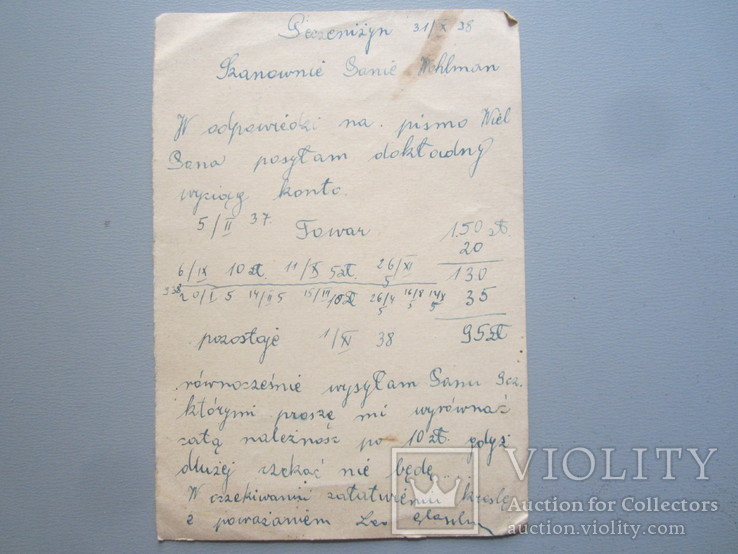 Peczeniżyn 31/X 38
Szanownie Panie Wohlman
W odpowiedzi na. pismo Wiel
Pana posyłam dokładny
wyciąg konta.
5/II 37. Towar 150 zł.
20
6/IX 10 zł. 11/X 5 zł. 26/XI 5 130
20/I 5 14/II 5 15/III 10 zł 26/4 5 16/8 5 14/9 5 35
pozostaje 1/XI 38 95 zł
równocześnie wysyłam Panu 9 cz.
którymi proszę mi wyrównać
całą należność po 10 zł. gdyż
dłużej czekać nie będę.
W oczekiwaniu załatwienia kreślę
z poważaniem Leo
VIOLITY
Auction for Collectors
auction.violity.com